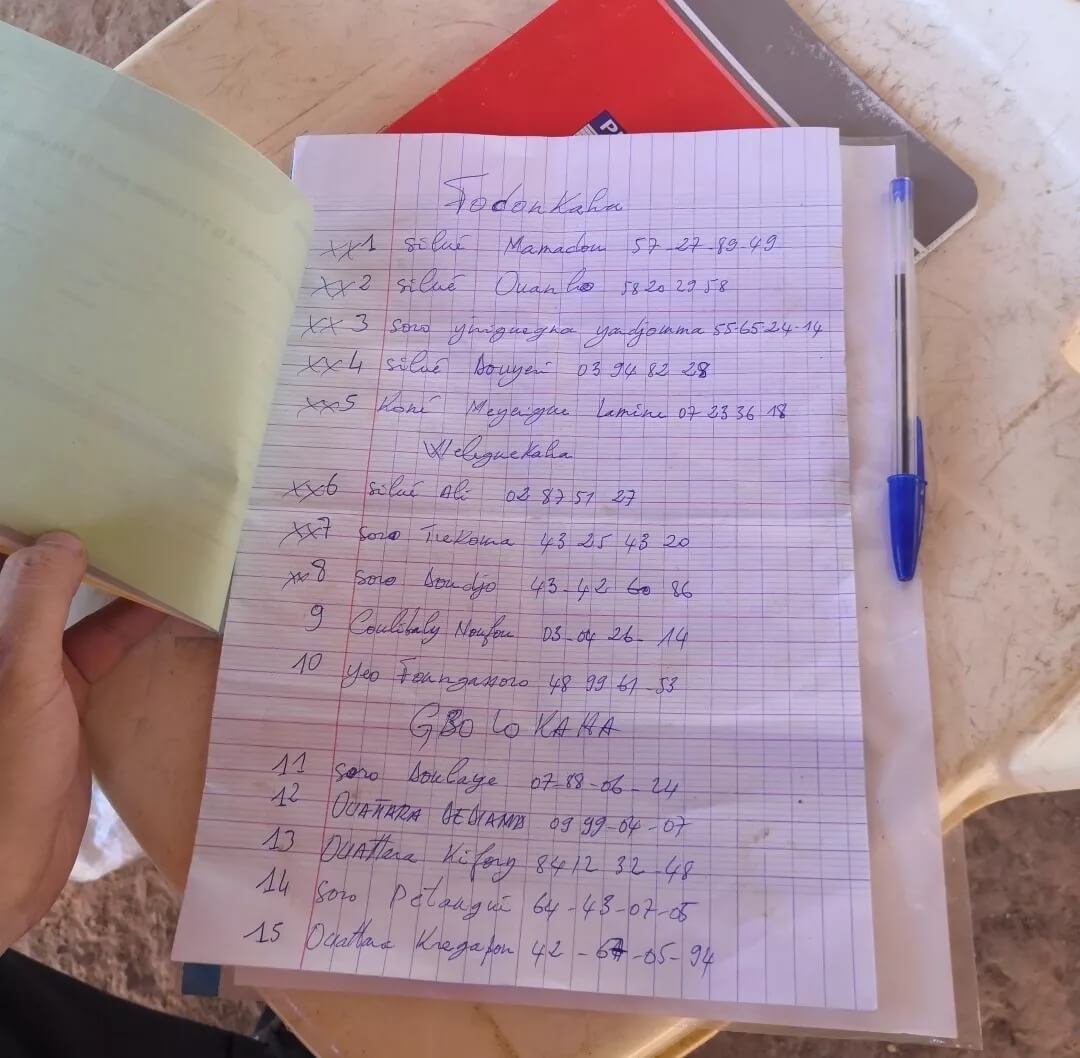 Fodonkaha
xx1 silué Mamadou 57-27-89-49
xx2 silué Ouanlo 58 20 29 58
xx3 soro yiriguegna yardjouma 55-65-24-14
xx4 silué Douyeri 03 94 82 28
xx5 Koné Meyerigue Lamine 07 23 36 18
Weleguekaha
xx6 silué Ali 02 87 51 27
xx7 soro Tiekoma 43 25 43 20
xx8 soro Doudjo 43-42 60 86
9 Coulibaly Noufou 03-04 26-14
10 yeo Foungassoro 48 99 61-53
GBO Lo KAHA
11 soro Doulaye 07-88-06-24
12 OUATTARA 09 99-04-07
13 OUATTara Kifory 84 12 32-48
14 soro Pétangui 64-43-07-05
15 Ouattara Kregapon 42-67-05-94